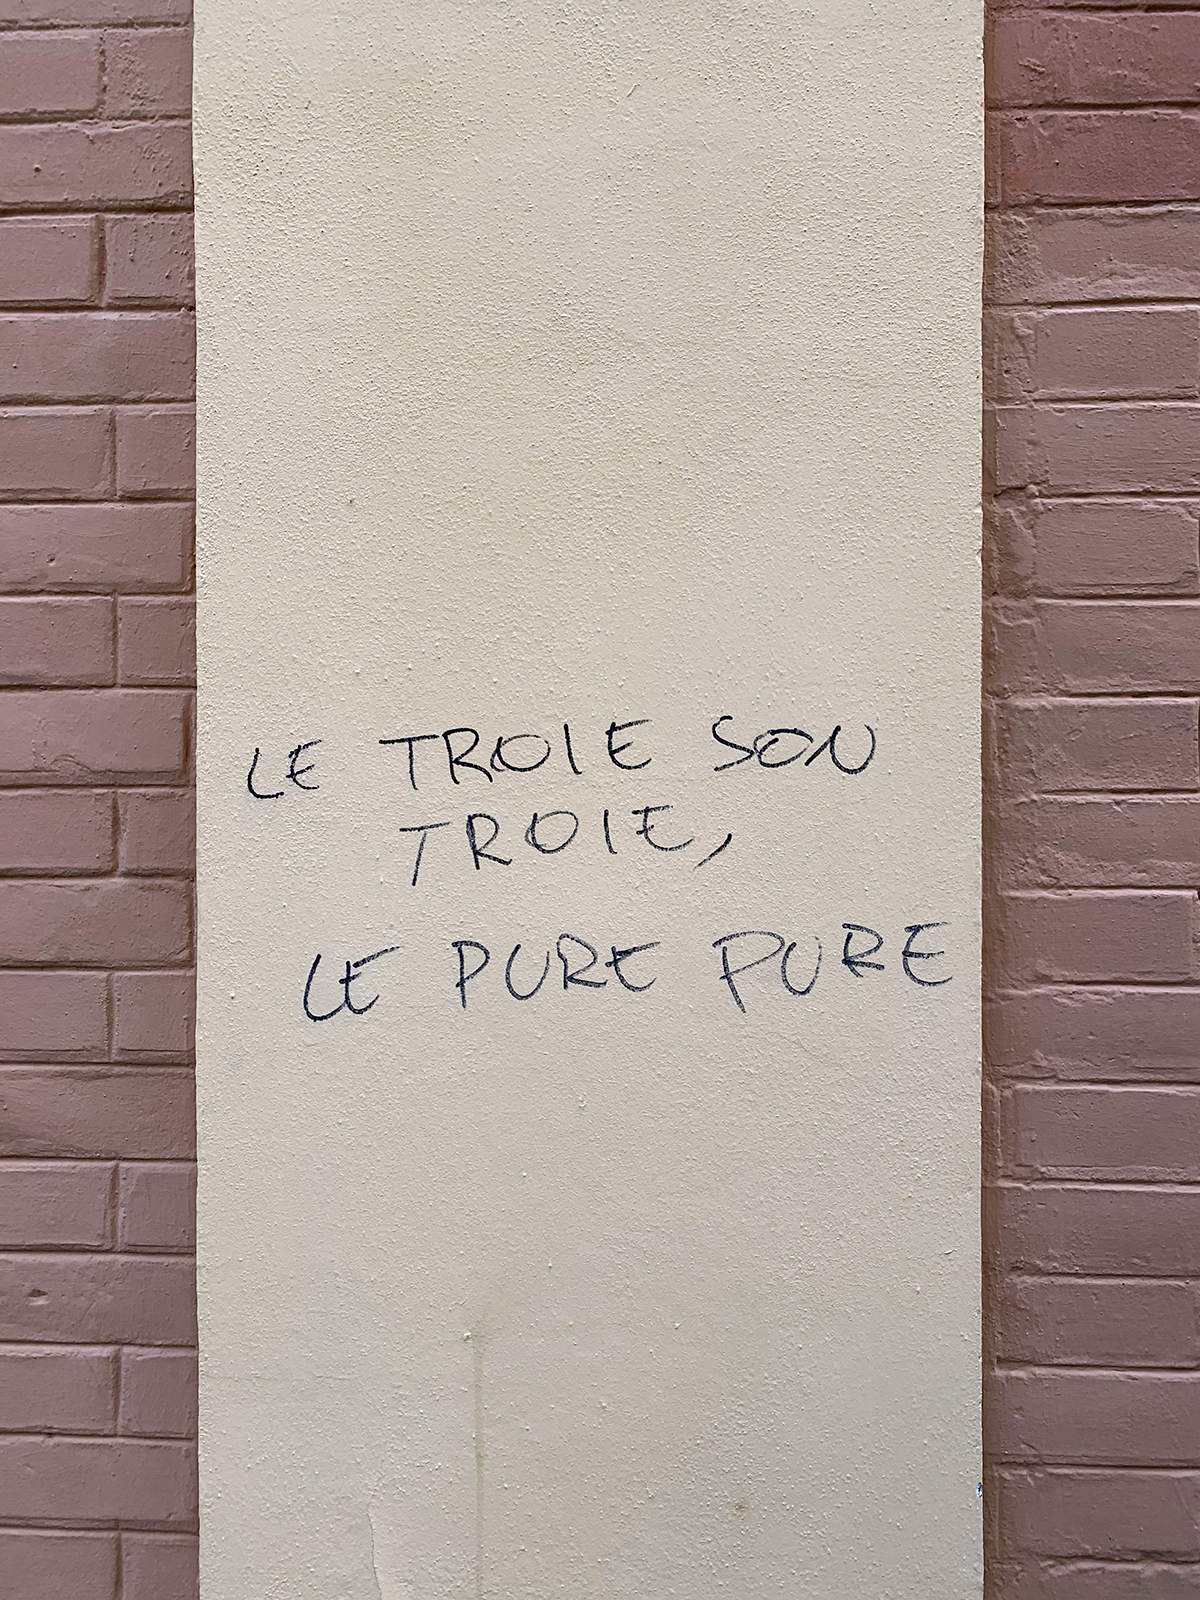 LE TROIE SON
TROIE,
LE PURE PURE